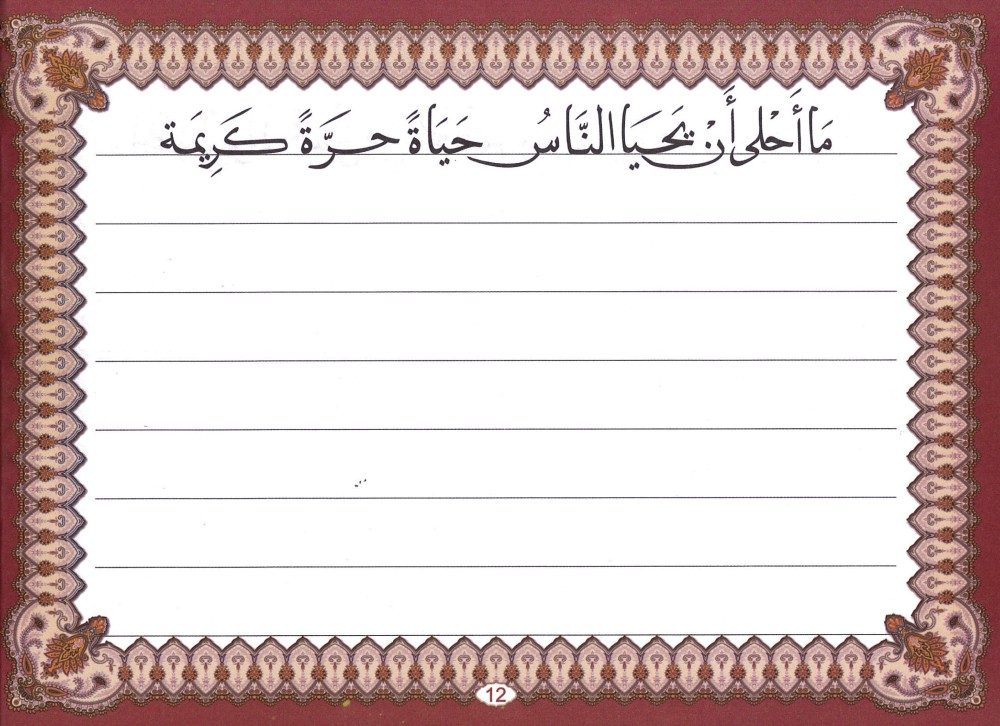 مَا أَحْلى أَنْ يَحَيا النَّاسُ حَيَاةً حرَّةً كَرِيمَة
12